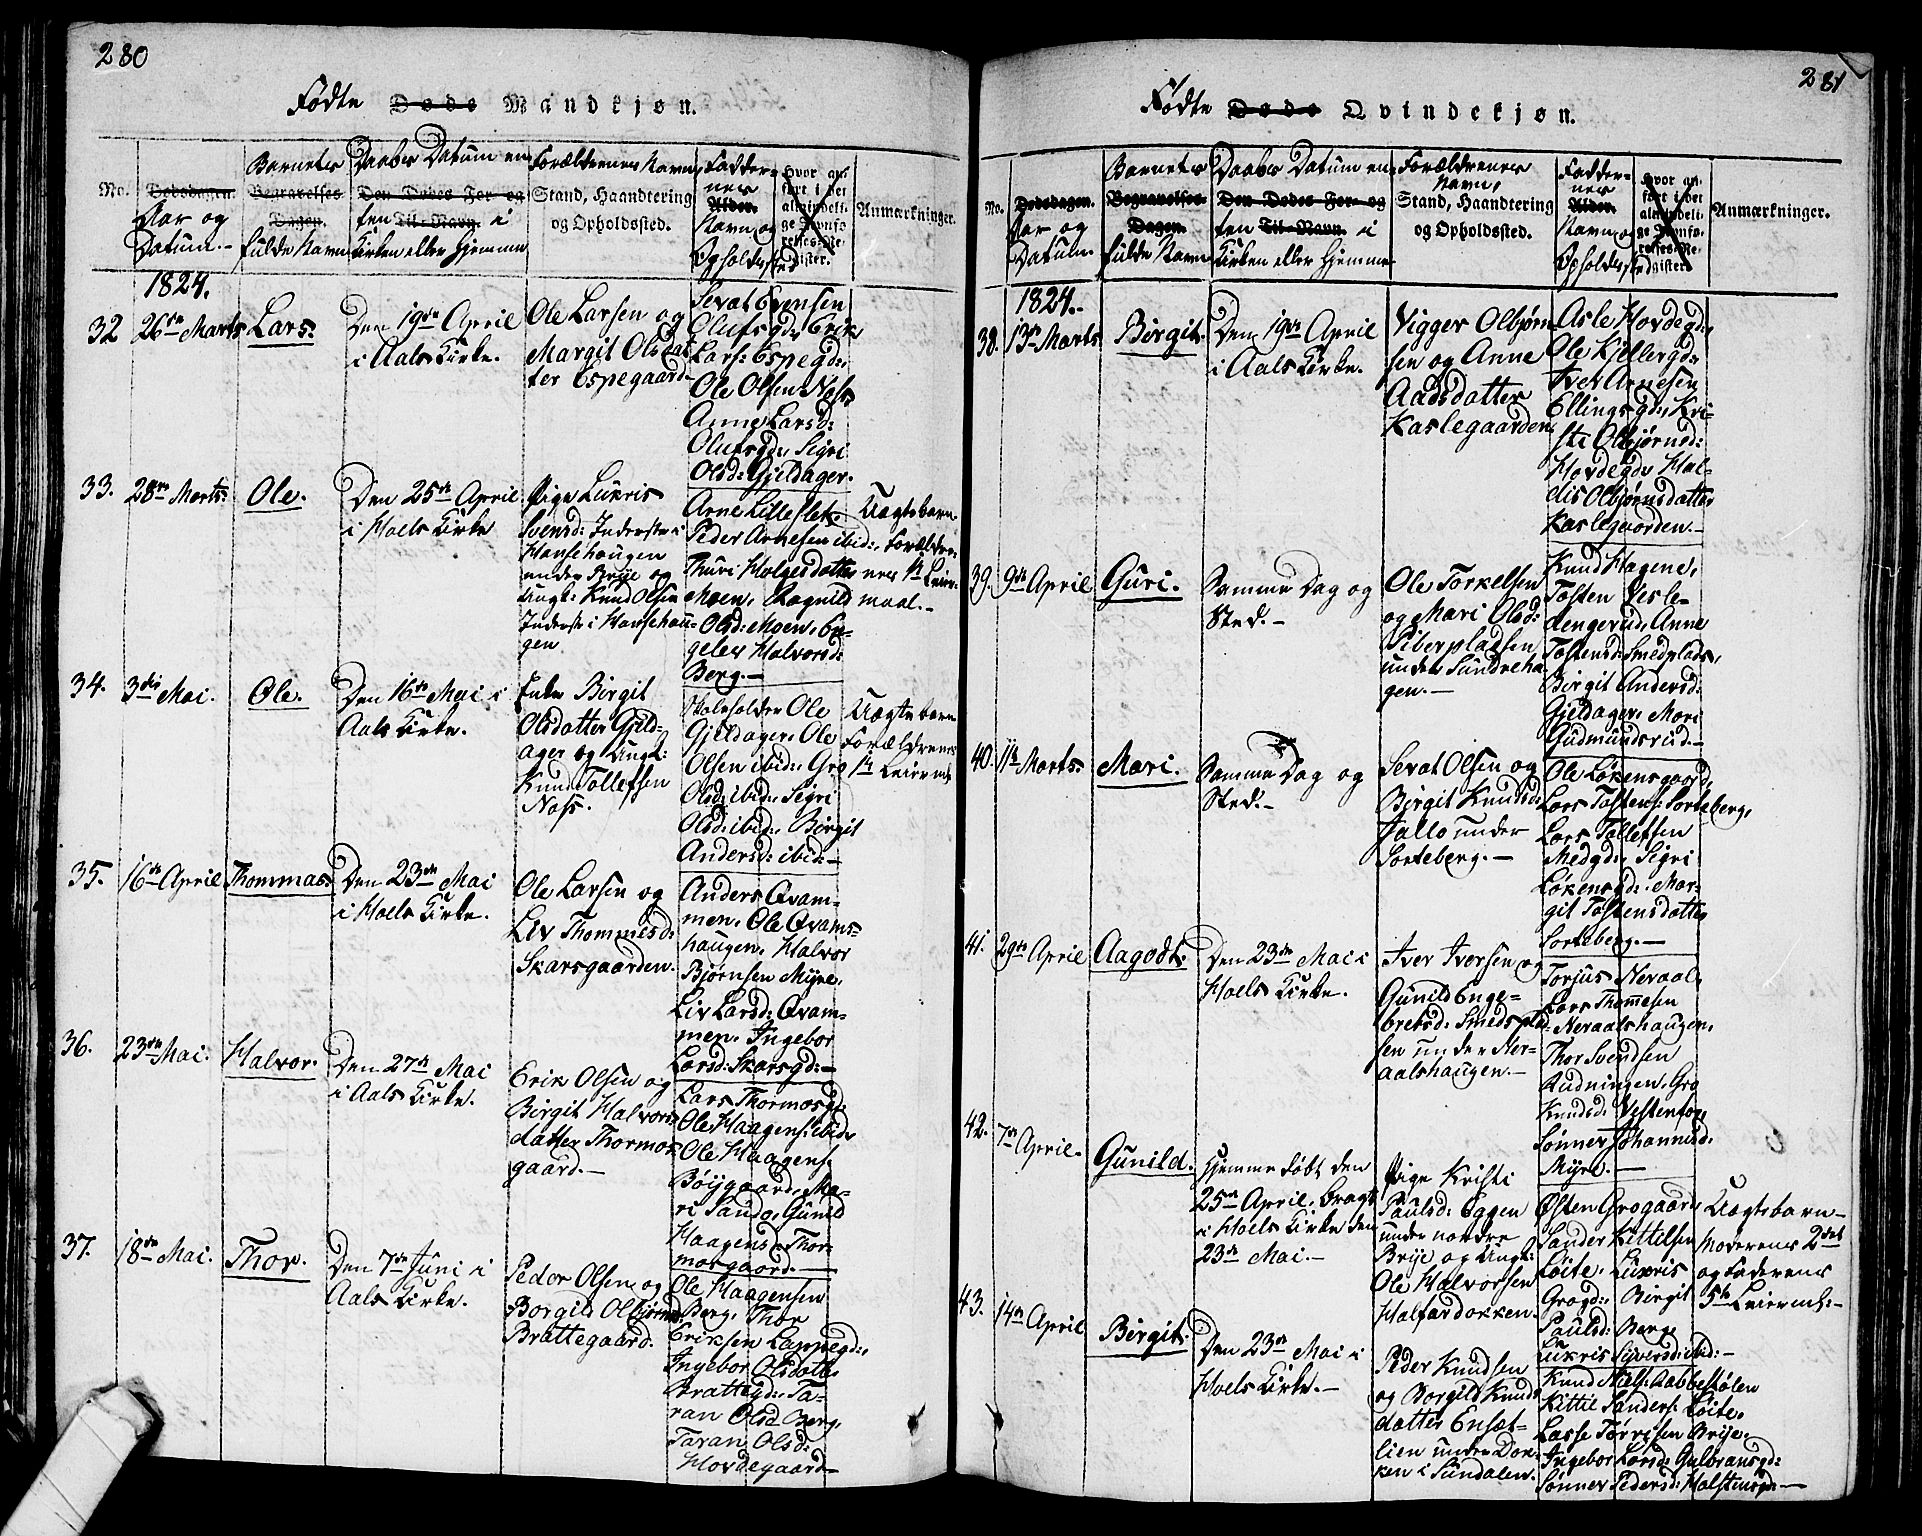 280
Fødte Døde Mandkjøn.
No.
Dødsdagen.
Aar og
Datum.-
Barnets
Begravelses
Dagen.
fulde Navn
Daabes Datum en
Den Dødes For- og
ten Til-Navn i
Kirken eller Hjemme
Forældrenes Navn,
Stand, Haandtering
og Opholdssted.
Fadder-
nes
Alder.
Navn og
Opholdssted
Hvor an-
ført i det
almindeli-
ge Jevnfø-
relses-Re-
gister.
Anmærkninger.
1824.
32
26de Marts
Lars.
Den 19de April
i Aals Kirke.
Ole Larsen og
Margit Olsdat
ter Espegaard
Sevat Evensen
Olufsgd:, Erik
Lars: Espegd:,
Ole Olsen Næss
Anne Larsd:
Olufsgd:, Sigri
Olsd: Gjeldager.
33.
28de Marts:
Ole.
Den 25de April
i Hoels Kirke
Pige Lukris
Svensd: Inderste i
Hansehaugen
under Brije og
Ungk: Knud Olsen
Inderst i Hansehau-
gen
Arne Lilleslet,
Peder Arnesen ibid:,
Thuri Holgesdatter
Moen, Ragnild
Olsd: Moen, En-
geler Halvorsd:
Berg.-
Uægtebarn.
Forældre-
nes 1st Leier-
maal.-
34.
3die Mai.
Ole.
Den 16de Mai i
Aals Kirke.
Enke Birgit
Olsdatter Gjeld-
ager og Ungk:
Knud Tollefsen
Næss.
Ole
Gjeldager, Ole
Olsen ibid:, Gro
Olsd: ibid:, Sigri
Olsd: ibid:, Birgit
Andersd: ibid:-
Uægtebarn
Forældrenes
1st Leierm:
35.
16de April
Thommas.
Den 23de Mai
i Hoels Kirke.
Ole Larsen og
Liv Thommesd:
Skarsgaarden.
Anders Qvam-
men, Ole Qvams-
haugen, Halvor
Bjørnsen Myre,
Liv Larsd: Qvam-
men, Ingebor
Larsd: Skarsgd:-
36.
23de Mai.
Halvor.
Den 27de Mai
i Aals Kirke.
Erik Olsen og
Birgit Halvors
datter Thormos
gaard.-
Lars Thormosgd:
Ole Haagens: ibid,
Ole Haagens:
Bøygaard, Ma-
ri Sando, Gunild
Haagens: Thor-
mosgaard.
37.
18de Mai.
Thor.
Den 7de Juni i
Aals Kirke.
Peder Olsen og
Borgild Olbjørnsd:
Brattegaard.
Ole Haagensen
Berg, Thor
Eriksen Lappegd:,
Ingebor Olsdatter
Brattegd:, Ta-
ran Olsd Berg,
Taran Olsd:
Hovdegaard-
281
Fødte Døde Qvindekjøn.
No.
Dødsdagen.
Aar og
Datum.
Barnets
Begravelses
Dagen.
fulde Navn
Daabes Datum en
Den Dødes For- og
ten Til-Navn i
Kirken eller Hjemme
Forældrenes
Navn,
Stand, Haandtering
og Opholdssted.
Fadder-
nes
Alder.
Navn og
Opholdssted
Hvor an-
ført i det
almindeli-
ge Jevnfø-
relses-Re-
gister.
Anmærkninger.
1824.
38.
13de Marts
Birgit.
Den 19de April
i Aals Kirke.
Vigger Olbjørn
sen og Anne
Aadsdatter
Kaslegaarden.
Asle Hovdegd:,
Ole Kjellergd:,
Iver Arnesen
Ellingsgd:, Kri-
sti Olbjørnsd:
Hovdegd:, Hal-
dis Olbjørnsdatter
Kaslegaarden.-
39.
9de April
Guri.
Samme Dag og
Sted.-
Ole Torkelsen
og Mari Olsd:
Piberpladsen
under Sundreha
gen.-
Knud Hagene,
Tosten Vesle-
dengerud, Anne
Tostensd: Smedplads,
Birgit Andersd:
Gjeldager, Mari
Gudmundsrud.-
40.
11te Marts:
Mari.
Samme Dag og
Sted.-
Sevat Olsen og
Birgit Knudsd:
Jallo under
Sorteberg.-
Ole Løkensgaard,
Lars Tostens: Sorteberg,
Lars Tollefsen
Medgd:, Sigri
Løkensgd:, Mar-
git Tostensdatter
Sorteberg.-
41.
29de April
Aagodt.
Den 23de Mai i
Hoels Kirke.
Iver Iversen og
Gunild Enge-
bretsd: Smedspla
sen under Ner-
aalshaugen.-
Torjus Neraal,
Lars Thommesen
Neraalshaugen,
Thor Svendsen
Rudningen, Gro
Knudsd: Vestenfor,
Sønner Johannesd:
Myre.-
42.
7de April.
Gunild.
Hjemme døbt den
25de April, bragt
i Hoels Kirke den
23de Mai.-
Pige Kristi
Paulsd: Eggen
under nordre
Brije og Ungk:
Ole Halvorsen
Halfardokken.
Østen Grogaard
Sander Kittilsen
Løite, Lukris
Grogd:, Birgit
Paulsd: Berg,
Lukris Siversd: ibid:-
Uægtebarn-
Moderens 2det
og Faderens
5te Leierm:-
43.
14de April
Birgit.
Den 23de Mai i
Hoels Kirke.-
Peder Knudsen
og Borgild Knuds
datter Ensæt-
lien under Dok-
ken i Sundalen.
Knud Niels: Aabbestølen
Kittil Sanders: Løite,
Lasse Tørrisen Brije,
Ingebor Larsd: Gulbransgd:
Sønner Pedersd: Holstensgd:-